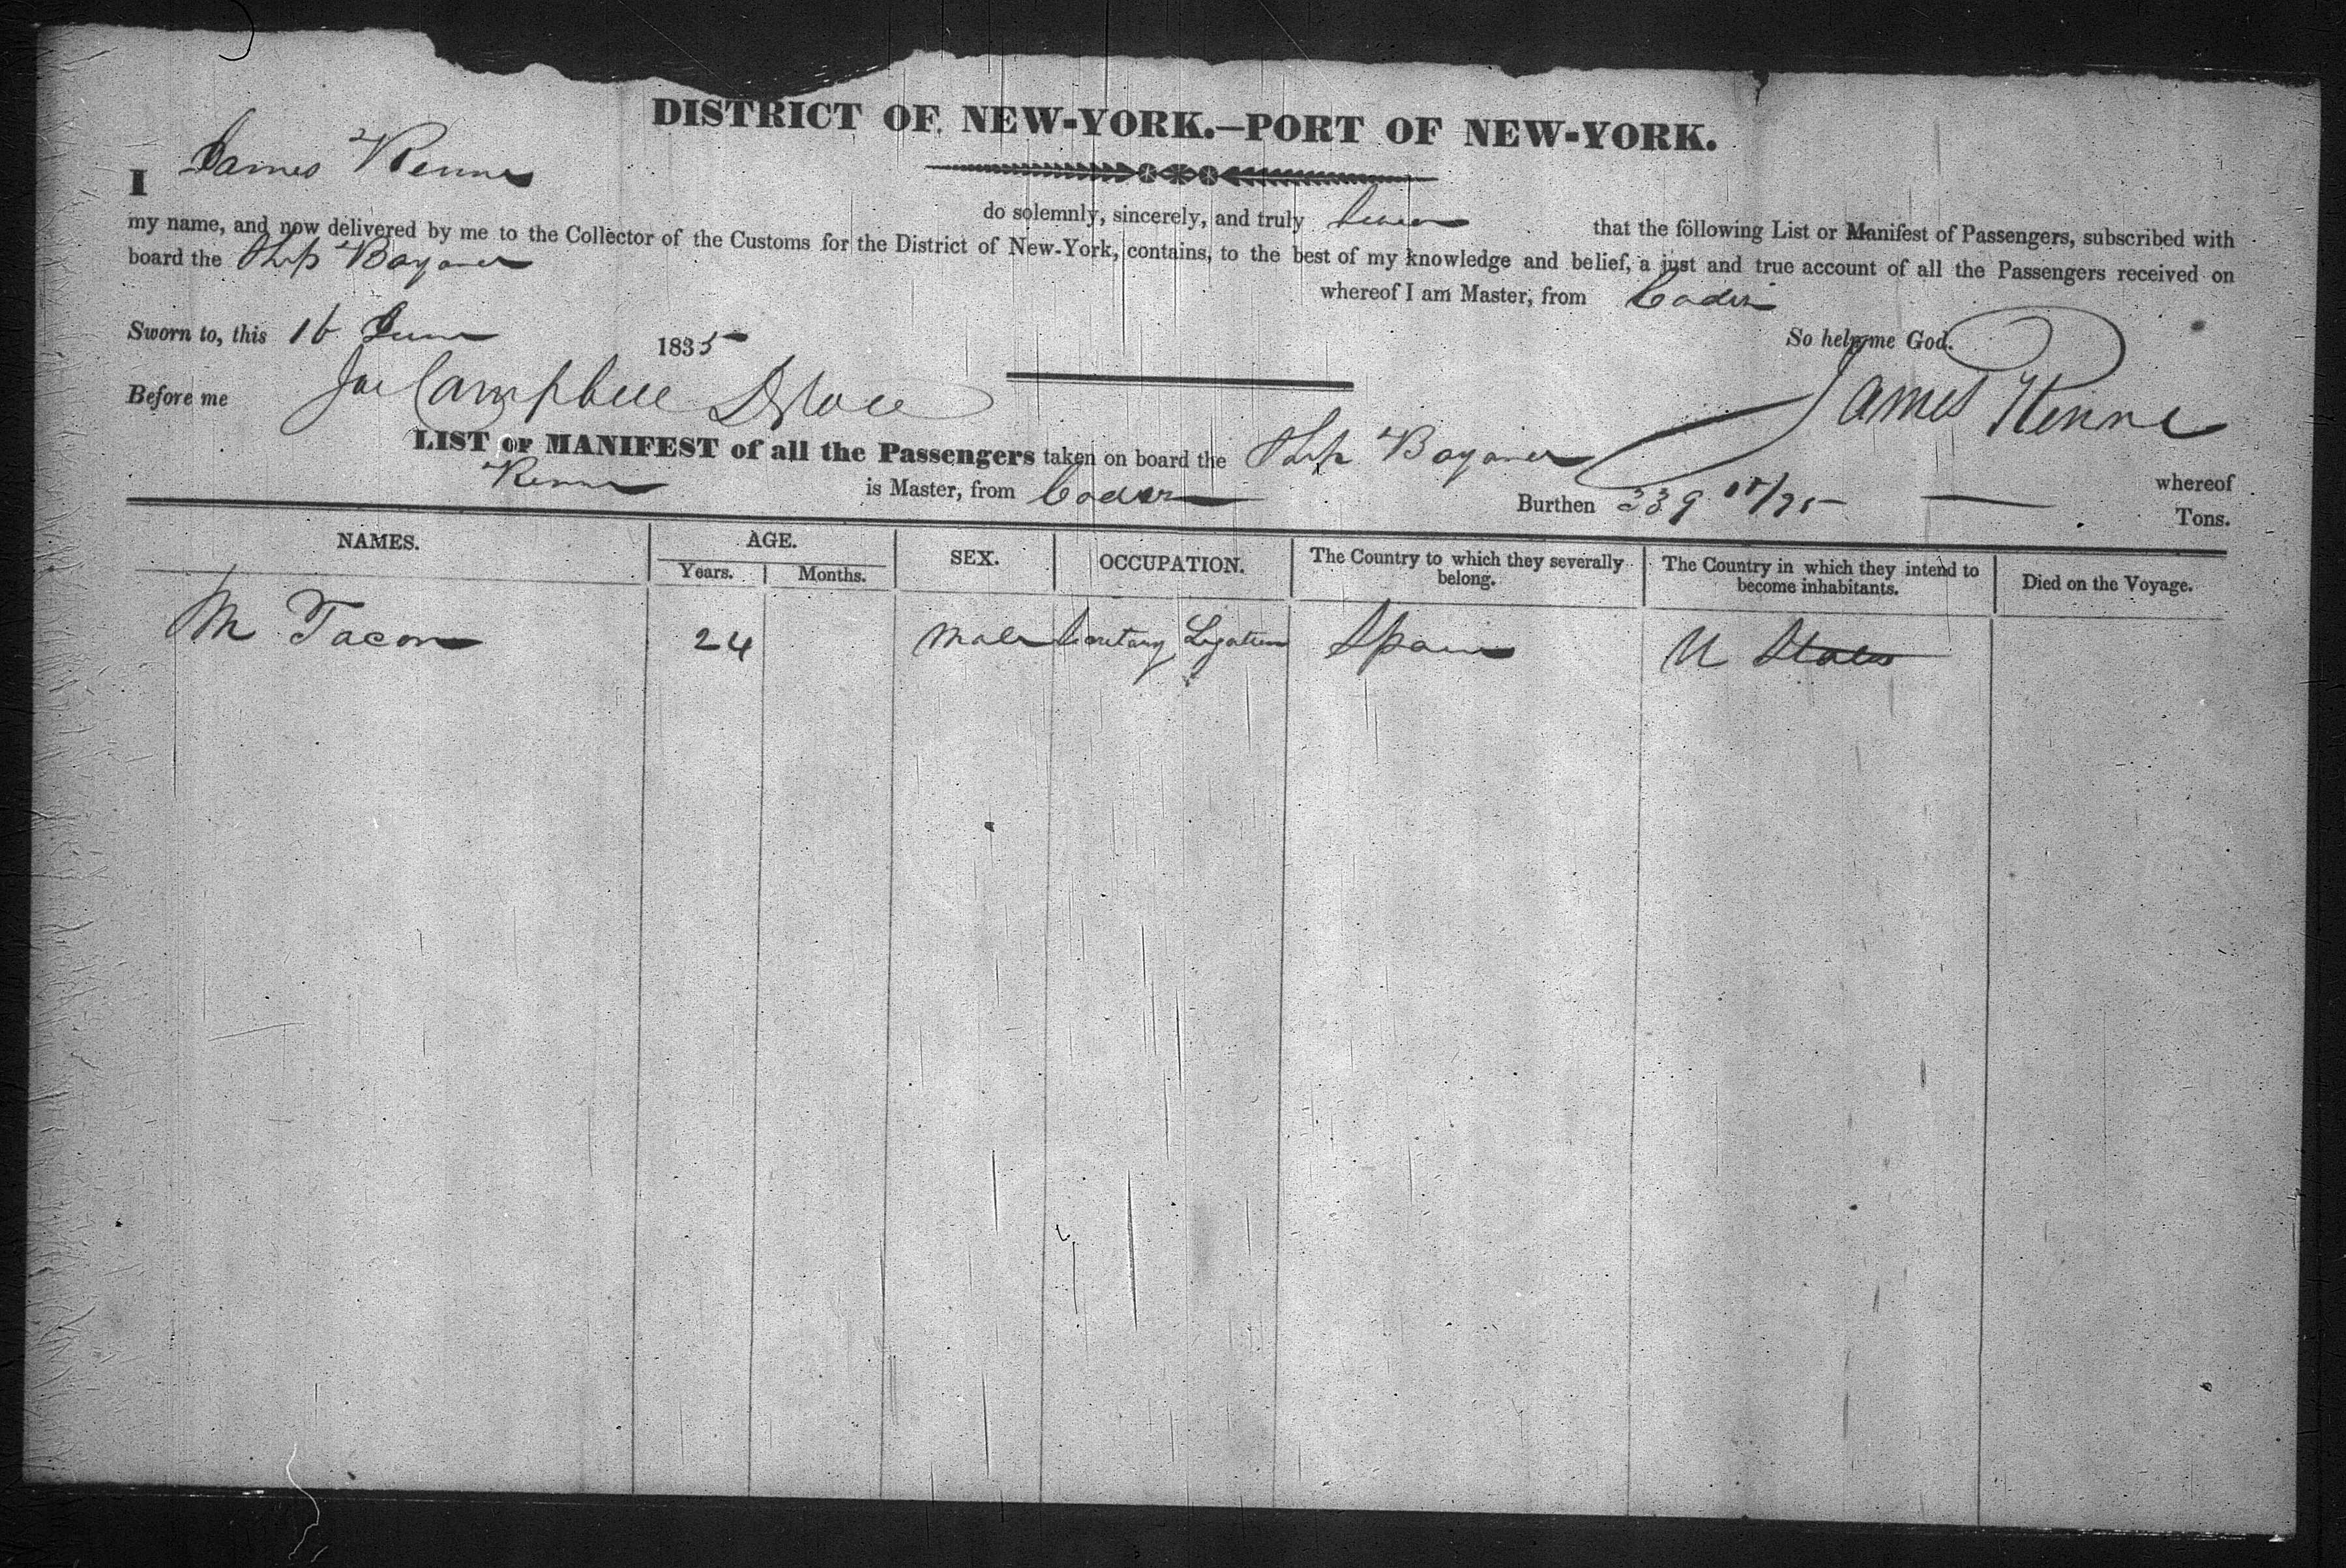 DISTRICT OF NEW-YORK.—PORT OF NEW-YORK.
I James Renne do solemnly, sincerely, and truly swear that the following List or Manifest of Passengers, subscribed with
my name, and now delivered by me to the Collector of the Customs for the District of New-York, contains, to the best of my knowledge and belief, a just and true account of all the Passengers received on
board the Ship Bayard whereof I am Master, from Cadiz
Sworn to, this 16 June 1835 So help me God.
Before me Campbell James Renne
LIST or MANIFEST of all the Passengers taken on board the Ship Bayard whereof
Renne is Master, from Cadiz Burthen 339 /95 Tons.
NAMES. AGE. SEX. OCCUPATION. The Country to which they severally belong. The Country in which they intend to become inhabitants. Died on the Voyage.
Years. Months.
M Tacon 24 Male Secretary Legation Spain U States